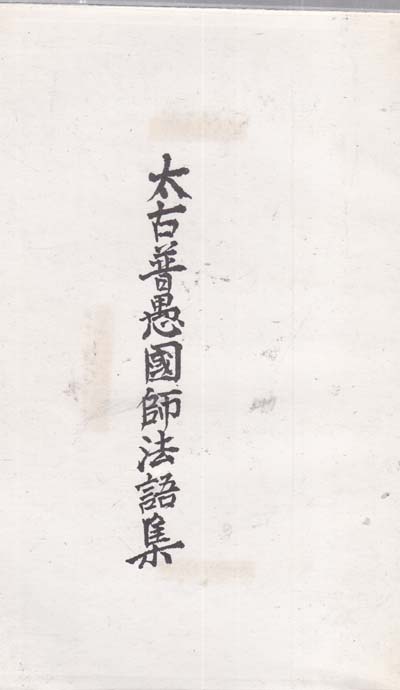 太古普愚國師法語集